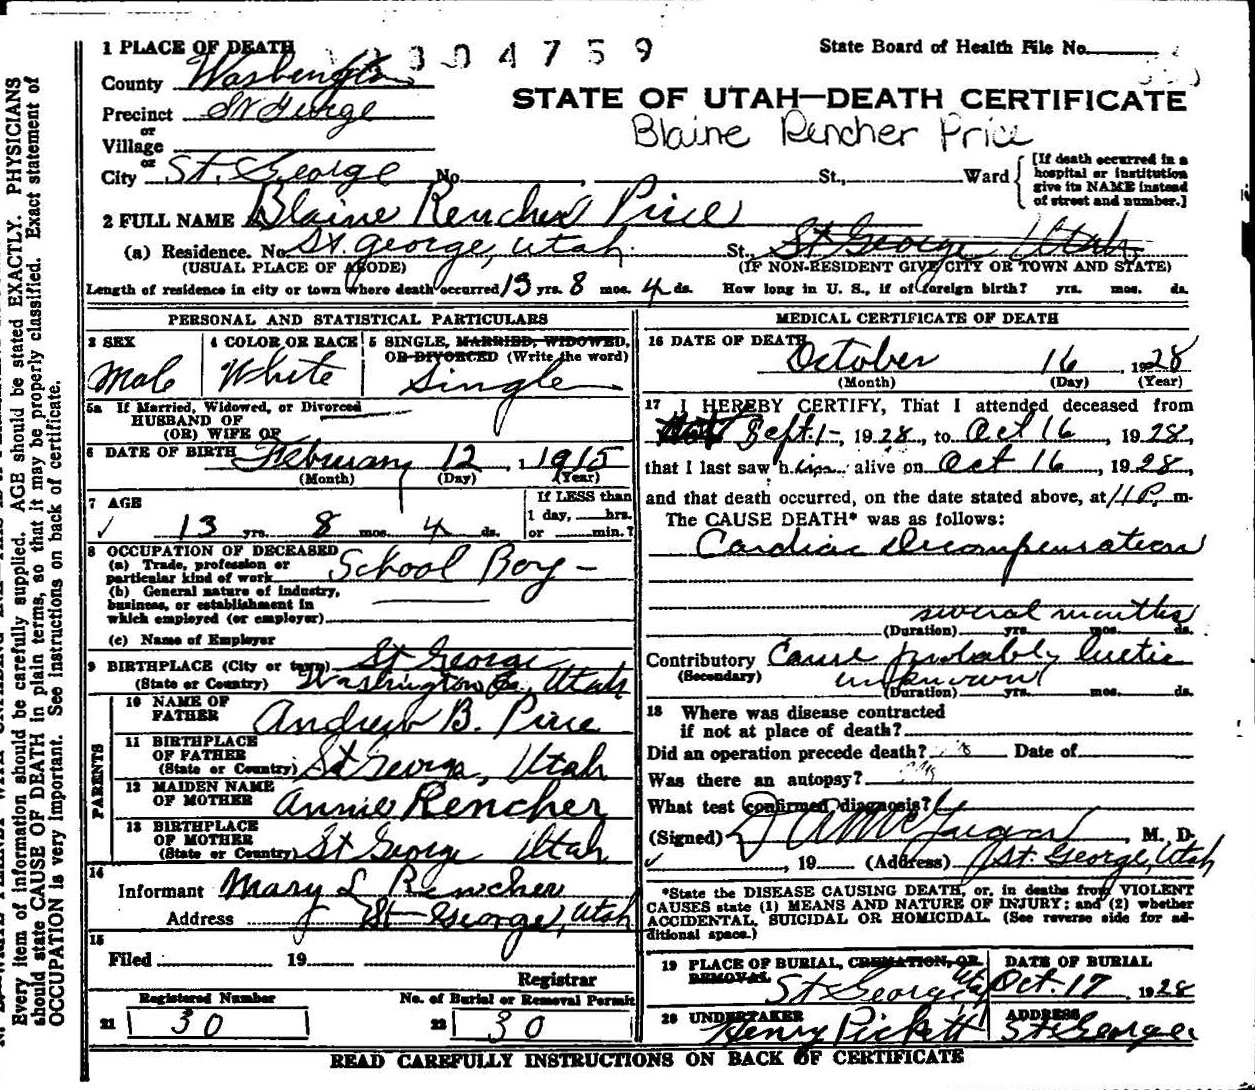 1 PLACE OF DEATH
304759
State Board of Health File No.
County Washington
STATE OF UTAH—DEATH CERTIFICATE
Precinct St George
Blaine Rencher Price
or
Village
or
City St. George No. , St., Ward
[If death occurred in a hospital or institution give its NAME instead of street and number.]
2 FULL NAME Blaine Rencher Price
(a) Residence. No. St. George, Utah. St., St George Utah
(USUAL PLACE OF ABODE) (IF NON-RESIDENT GIVE CITY OR TOWN AND STATE)
Length of residence in city or town where death occurred 13 yrs. 8 mos. 4 ds. How long in U. S., if of foreign birth? yrs. mos. ds.
PERSONAL AND STATISTICAL PARTICULARS
3 SEX
Male
4 COLOR OR RACE
White
5 SINGLE, MARRIED, WIDOWED,
OR DIVORCED (Write the word)
Single
5a If Married, Widowed, or Divorced
HUSBAND OF
(OR) WIFE OF
6 DATE OF BIRTH February 12, 1915
(Month) (Day) (Year)
7 AGE
13 yrs. 8 mos. 4 ds.
If LESS than
1 day, hrs.
or min.?
8 OCCUPATION OF DECEASED
(a) Trade, profession or
particular kind of work School Boy -
(b) General nature of industry,
business, or establishment in
which employed (or employer)
(c) Name of Employer
9 BIRTHPLACE (City or town) St George
(State or Country) Washington Co., Utah
PARENTS
10 NAME OF
FATHER Andrew B. Price
11 BIRTHPLACE
OF FATHER
(State or Country) St George, Utah
12 MAIDEN NAME
OF MOTHER Annie Rencher
13 BIRTHPLACE
OF MOTHER
(State or Country) St George Utah
14
Informant Mary L Rencher
Address St George, Utah
15
Filed 19
Registrar
Registered Number
21 30
No. of Burial or Removal Permit
22 30
MEDICAL CERTIFICATE OF DEATH
16 DATE OF DEATH
October 16, 1928
(Month) (Day) (Year)
17 I HEREBY CERTIFY, That I attended deceased from
Sept. 1-, 1928, to Oct 16, 1928,
that I last saw him alive on Oct 16, 1928,
and that death occurred, on the date stated above, at 11 P. m.
The CAUSE DEATH* was as follows:
Cardiac Decompensation
several months
(Duration) yrs. mos. ds.
Contributory Cause probably luetic
(Secondary) unknown
(Duration) yrs. mos. ds.
18 Where was disease contracted
if not at place of death?
Did an operation precede death? Date of
Was there an autopsy?
What test confirmed diagnosis?
(Signed) M. D.
, 19 (Address) St. George, Utah
*State the DISEASE CAUSING DEATH, or, in deaths from VIOLENT
CAUSES state (1) MEANS AND NATURE OF INJURY; and (2) whether
ACCIDENTAL, SUICIDAL OR HOMICIDAL. (See reverse side for ad-
ditional space.)
19 PLACE OF BURIAL, CREMATION, OR
REMOVAL
St George Utah
DATE OF BURIAL
Oct. 17 1928
20 UNDERTAKER
Henry Pickett
ADDRESS
St George
READ CAREFULLY INSTRUCTIONS ON BACK OF CERTIFICATE
Every item of information should be carefully supplied. AGE should be stated EXACTLY. PHYSICIANS
should state CAUSE OF DEATH in plain terms, so that it may be properly classified. Exact statement of
OCCUPATION is very important. See instructions on back of certificate.